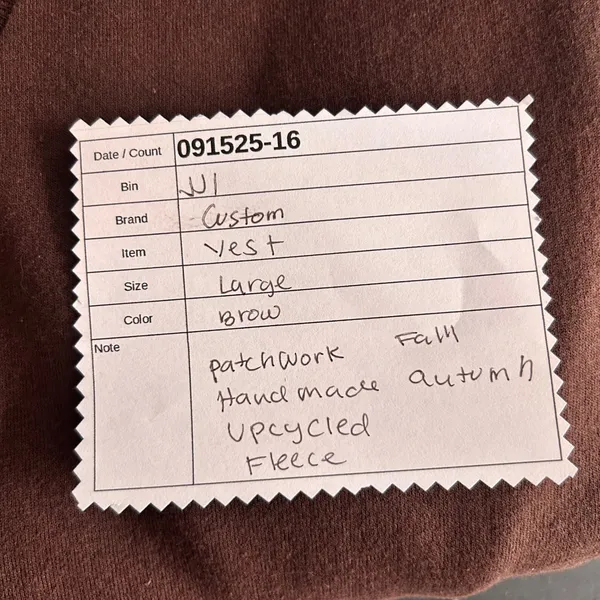 Date / Count 091525-16
Bin
Brand Custom
Item Vest
Size Large
Color Brow
Note
patchwork Fall
Handmade autumn
Upcycled
Fleece